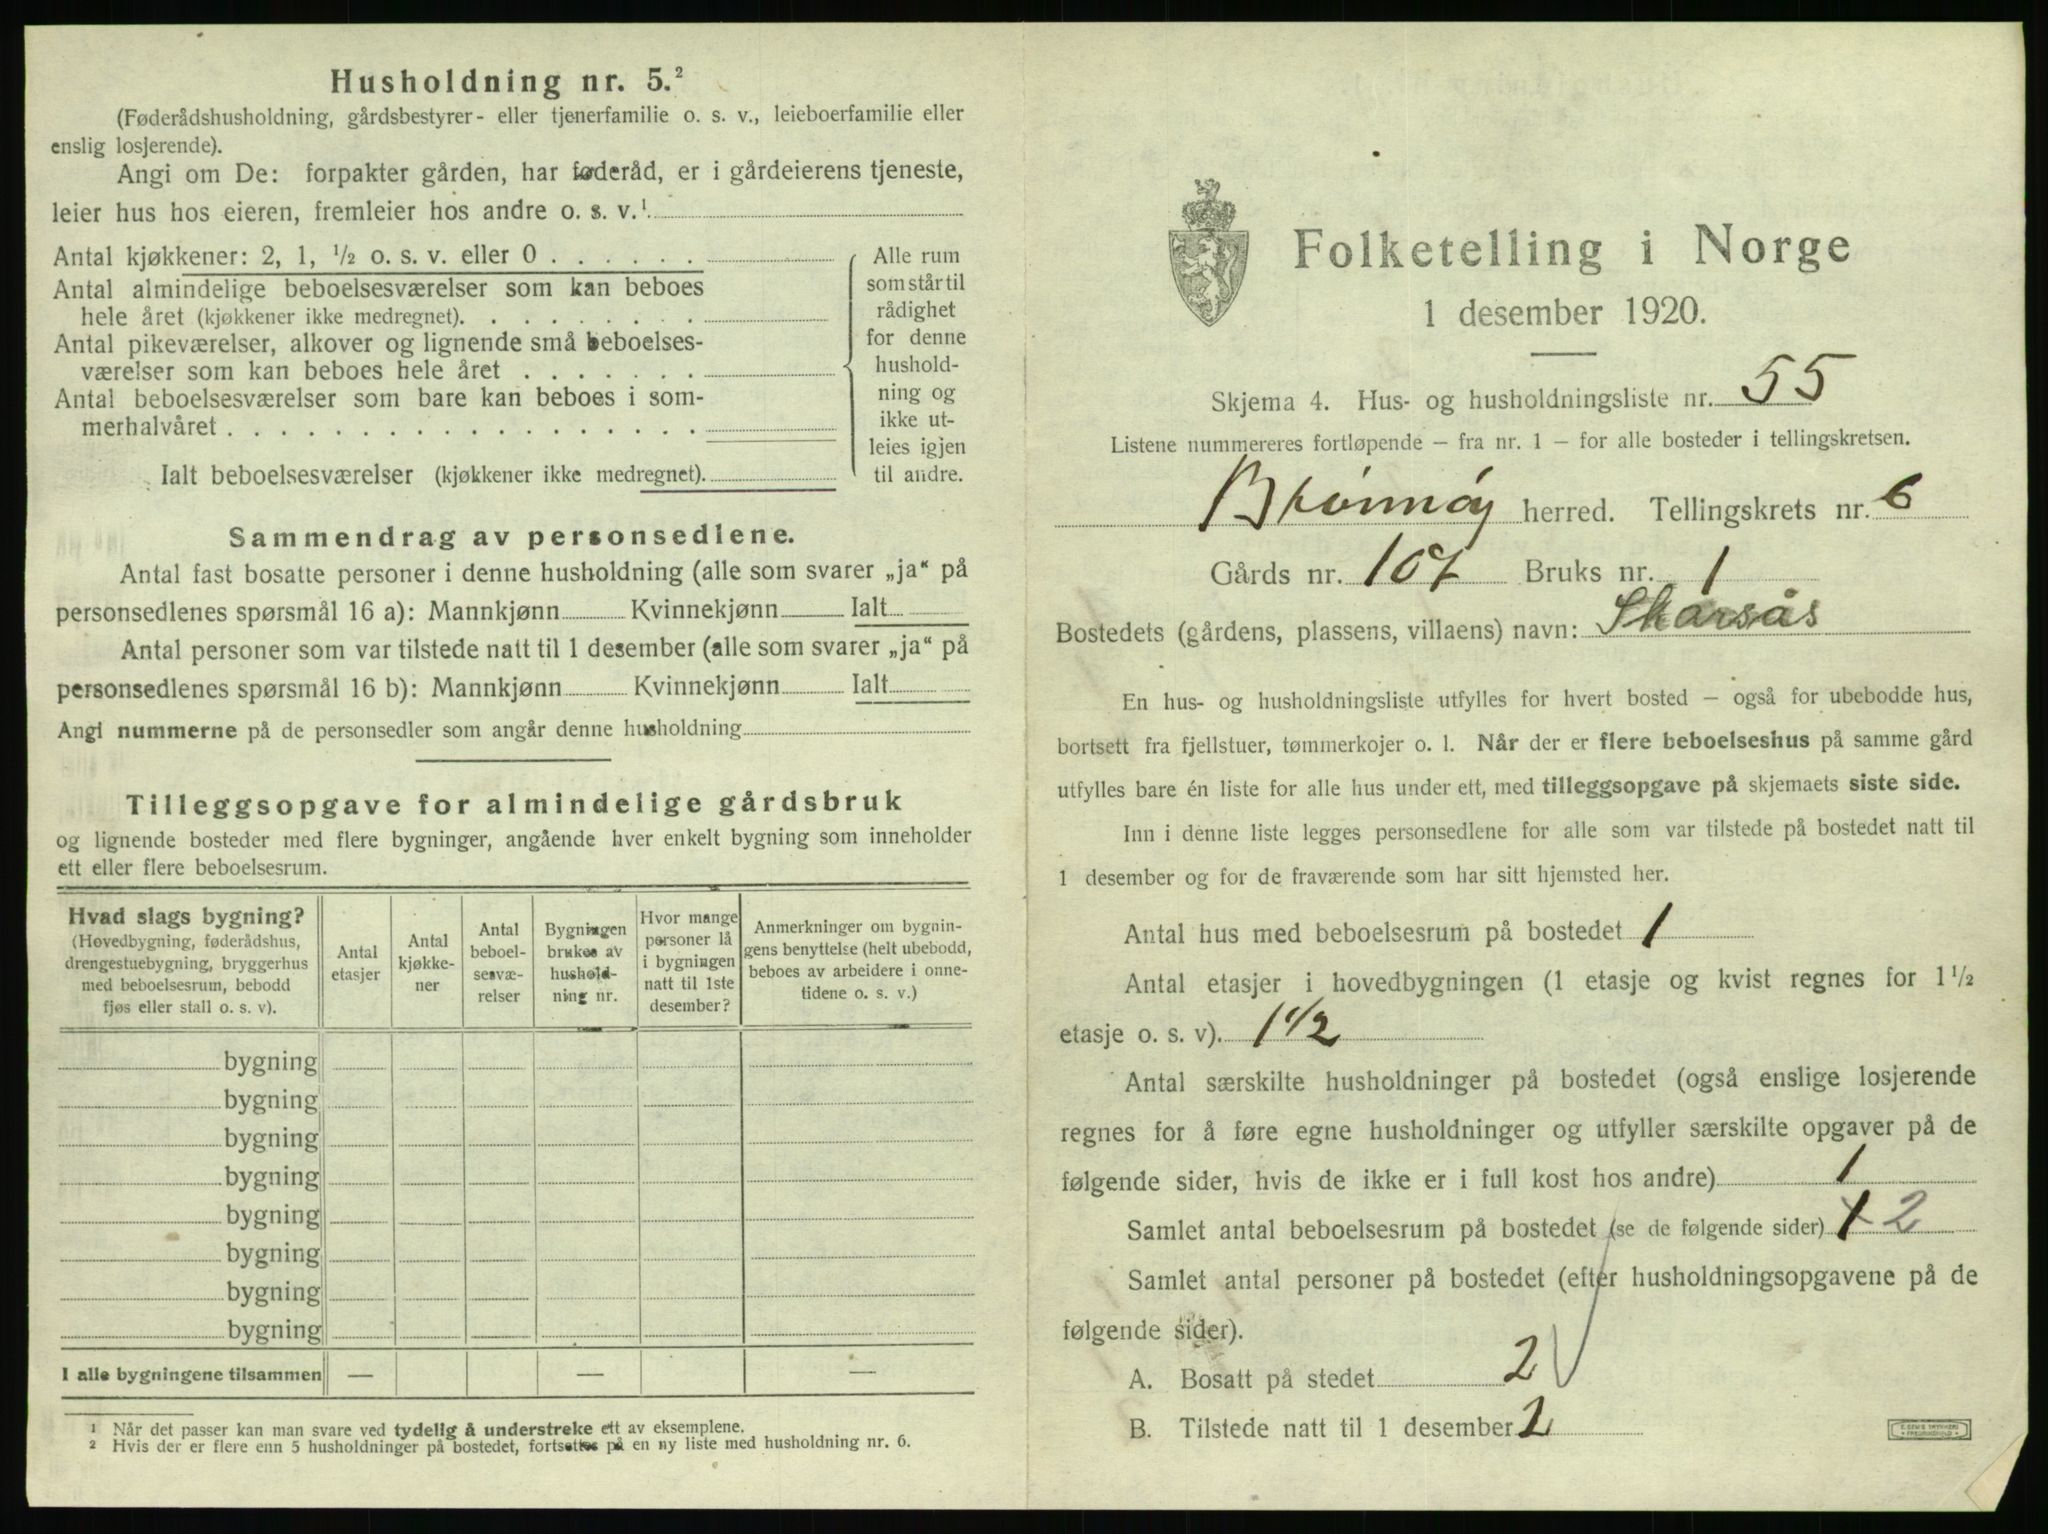 Husholdning nr. 5.²
(Føderådshusholdning, gårdsbestyrer- eller tjenerfamilie o. s. v., leieboerfamilie eller
enslig losjerende).
Angi om De: forpakter gården, har føderåd, er i gårdeierens tjeneste,
leier hus hos eieren, fremleier hos andre o. s. v.¹
Antal kjøkkener: 2, 1, ½ o. s. v. eller 0
Antal almindelige beboelsesværelser som kan beboes
hele året (kjøkkener ikke medregnet).
Antal pikeværelser, alkover og lignende små beboelses-
værelser som kan beboes hele året
Antal beboelsesværelser som bare kan beboes i som-
merhalvåret
Ialt beboelsesværelser (kjøkkener ikke medregnet).
Alle rum
som står til
rådighet
for denne
hushold-
ning og
ikke ut-
leies igjen
til andre.
Sammendrag av personsedlene.
Antal fast bosatte personer i denne husholdning (alle som svarer „ja“ på
personsedlenes spørsmål 16 a): Mannkjønn Kvinnekjønn Ialt
Antal personer som var tilstede natt til 1 desember (alle som svarer „ja“ på
personsedlenes spørsmål 16 b): Mannkjønn Kvinnekjønn Ialt
Angi nummerne på de personsedler som angår denne husholdning
Tilleggsopgave for almindelige gårdsbruk
og lignende bosteder med flere bygninger, angående hver enkelt bygning som inneholder
ett eller flere beboelsesrum.
Hvad slags bygning?
(Hovedbygning, føderådshus,
drengestuebygning, bryggerhus
med beboelsesrum, bebodd
fjøs eller stall o. s. v).
Antal
etasjer
Antal
kjøkke-
ner
Antal
beboel-
sesvæ-
relser
Bygningen
brukes av
hushold-
ning nr.
Hvor mange
personer lå
i bygningen
natt til 1ste
desember?
Anmerkninger om bygnin-
gens benyttelse (helt ubebodd,
beboes av arbeidere i onne-
tidene o. s. v.)
bygning
bygning
bygning
bygning
bygning
bygning
bygning
bygning
I alle bygningene tilsammen — — —
¹ Når det passer kan man svare ved tydelig å understreke ett av eksemplene.
² Hvis der er flere enn 5 husholdninger på bostedet, fortsettes på en ny liste med husholdning nr. 6.
Folketelling i Norge
1 desember 1920.
Skjema 4. Hus- og husholdningsliste nr. 55
Listene nummereres fortløpende – fra nr. 1 – for alle bosteder i tellingskretsen.
Brønnøy herred. Tellingskrets nr. 6
Gårds nr. 107 Bruks nr. 1
Bostedets (gårdens, plassens, villaens) navn: Skarsås
En hus- og husholdningsliste utfylles for hvert bosted – også for ubebodde hus,
bortsett fra fjellstuer, tømmerkojer o. l. Når der er flere beboelseshus på samme gård
utfylles bare én liste for alle hus under ett, med tilleggsopgave på skjemaets siste side.
Inn i denne liste legges personsedlene for alle som var tilstede på bostedet natt til
1 desember og for de fraværende som har sitt hjemsted her.
Antal hus med beboelsesrum på bostedet 1
Antal etasjer i hovedbygningen (1 etasje og kvist regnes for 1½
etasje o. s. v). 1 1/2
Antal særskilte husholdninger på bostedet (også enslige losjerende
regnes for å føre egne husholdninger og utfyller særskilte opgaver på de
følgende sider, hvis de ikke er i full kost hos andre) 1
Samlet antal beboelsesrum på bostedet (se de følgende sider) 1 2
Samlet antal personer på bostedet (efter husholdningsopgavene på de
følgende sider).
A. Bosatt på stedet 2
B. Tilstede natt til 1 desember 2